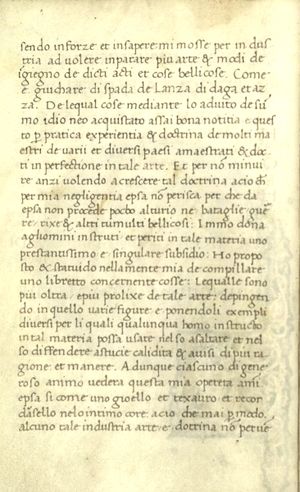 sendo in forze et in sapere mi mosse per indus
tria ad volere inparare piu arte & modi de
igiegno de dicti acti et cose bellicose. Come
e guichare di spada de Lanza di daga et az
za. De lequal cose mediante lo aduito de sū
mo idio neo acquistato assai bona notitia e ques
to p pratica experientia & doctrina de molti ma
estri de varii et diversi paesi amaestrati & doc
ti in perfectione in tale arte. Et per nō minui
re anzi volendo acrescere tal doctrina acio ch
per mia negligentia epsa nō perisca per che da
epsa non procede pocho alturio ne bataglie gue
re rixe & altri tumulti bellicosi: Immo dona
agli omini instruti et periti in tale materia uno
prestantissimo e singulare subsidio: Ho propo
sto & statuido nella mente mia de compillare
uno libretto concernente cosse: Lequalle sono
più oltra, e piu prolixe de tale arte: depingen
do in quello varie figure e ponendoli exempli
diversi per li quali qualunqua homo instructo
in tal materia possa usare nel so asaltare et nel
so diffendere astucie calidita & avisi di più ra
gione et manere. Adunque ciascuno di gene
roso animo vedera questa mia opereta ami
epsa si come uno gioello et texauro et recor
dansello nelo intimo core: acio che mai p modo
alcuno tale industria arte e dotrina nō perve